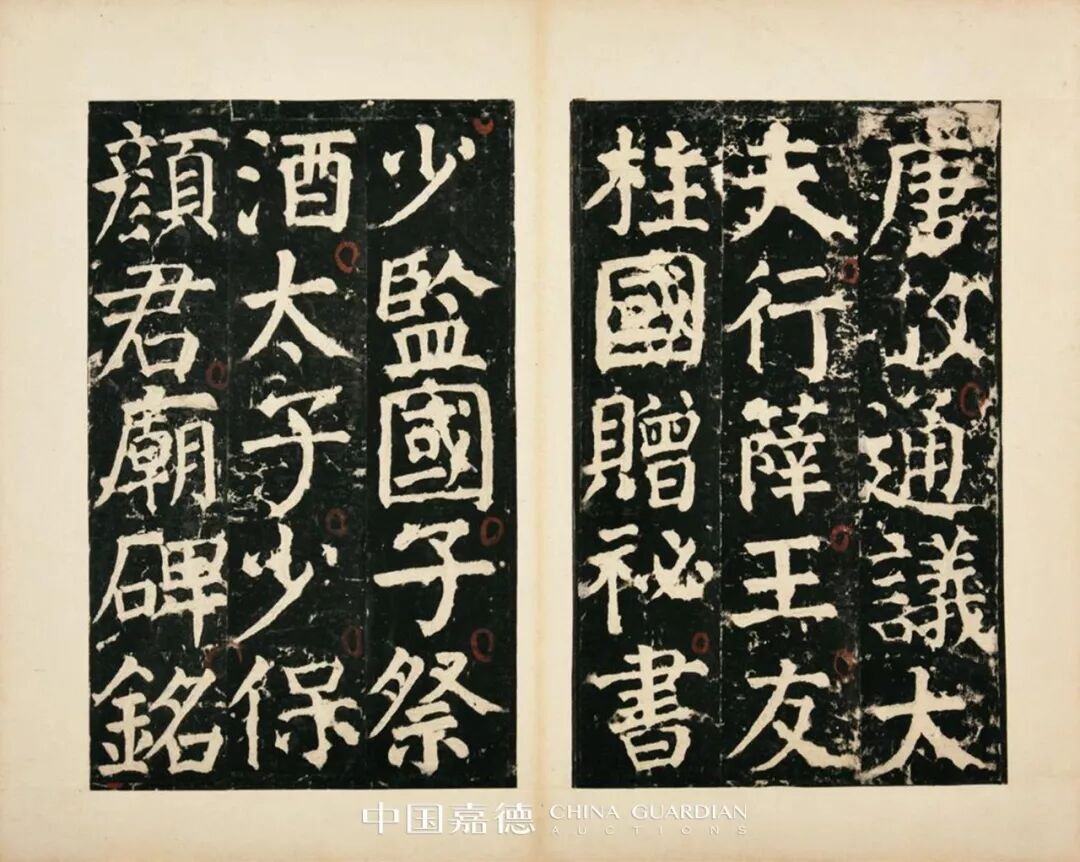 唐故通議大
夫行薛王友
柱國贈祕書
少監國子祭
酒太子少保
顏君廟碑銘
中国嘉德 CHINA GUARDIAN
AUCTIONS